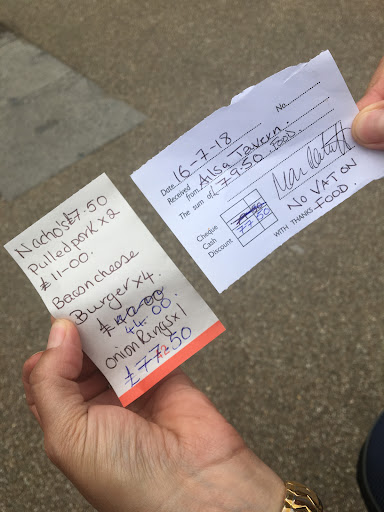 Nachos £7.50
Pulled pork x 2
£11-00.
Bacon cheese
Burger x 4.
£40.00
44.00
onion Rings x 1
£77.50
Date 16-7-18 No.
Received from Ailsa Tavern.
The sum of £79.50 FOOD.
Cheque
Cash 77 50
Discount
NO VAT ON
WITH THANKS FOOD.